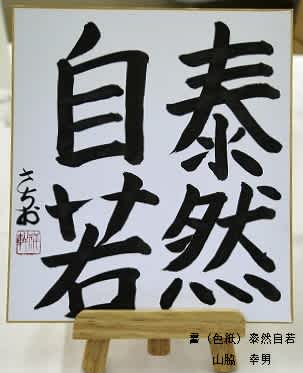 泰然
自若
さちお
書（色紙）泰然自若
山脇　幸男